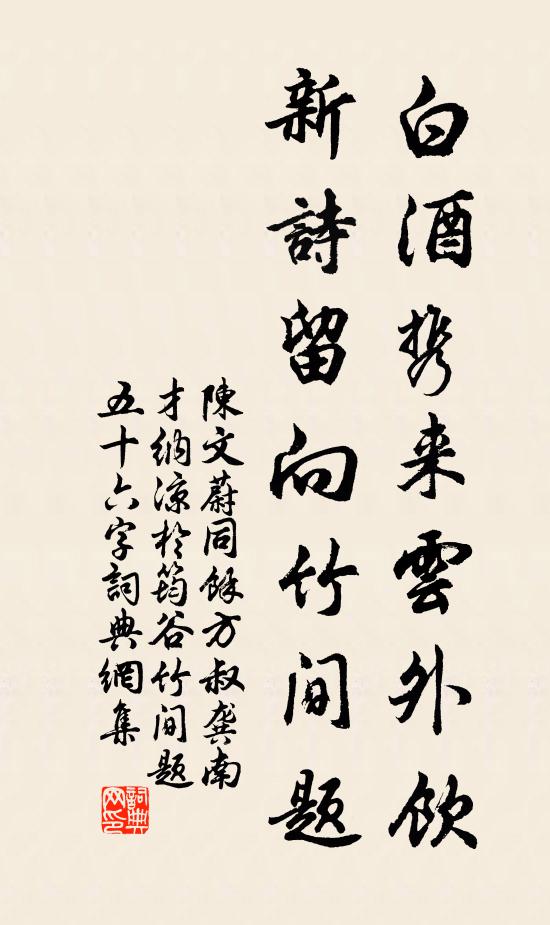 白酒携来雲外飲
新詩留向竹間題
陳文蔚同餘方叔龔南
才納凉於筠谷竹間題
五十六字詞典網集
詞典網印